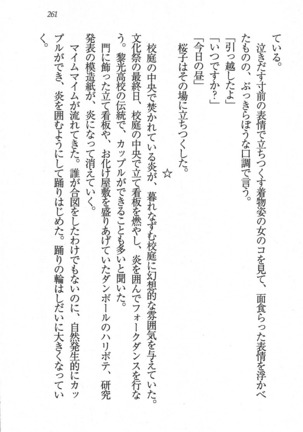 261
ている。
　泣きだす寸前の表情で立ちつくす着物姿の女のコを見て、面食らった表情を浮かべ
たものの、ぶっきらぼうな口調で言う。
「引っ越したよ」
「いつですか？」
「今日の昼」
　桜子はその場に立ちつくした。
☆
　校庭の中央で焚かれている炎が、暮れなずむ校庭に幻想的な雰囲気を与えていた。
文化祭の最終日、校庭の中央で立て看板を燃やし、炎を囲んでフォークダンスを行な
う。黎光高校の伝統で、カップルができることも多いと聞いた。
　門に飾った立て看板や、お化け屋敷を盛りあげていたダンボールのハリボテ、研究
発表の模造紙が、炎になって消えていく。
　マイムマイムが流れてきた。誰が合図をしたわけでもないのに、自然発生的にカッ
プルができ、炎を囲むようにして踊りはじめた。踊りの輪はしだいに大きくなってい
く。